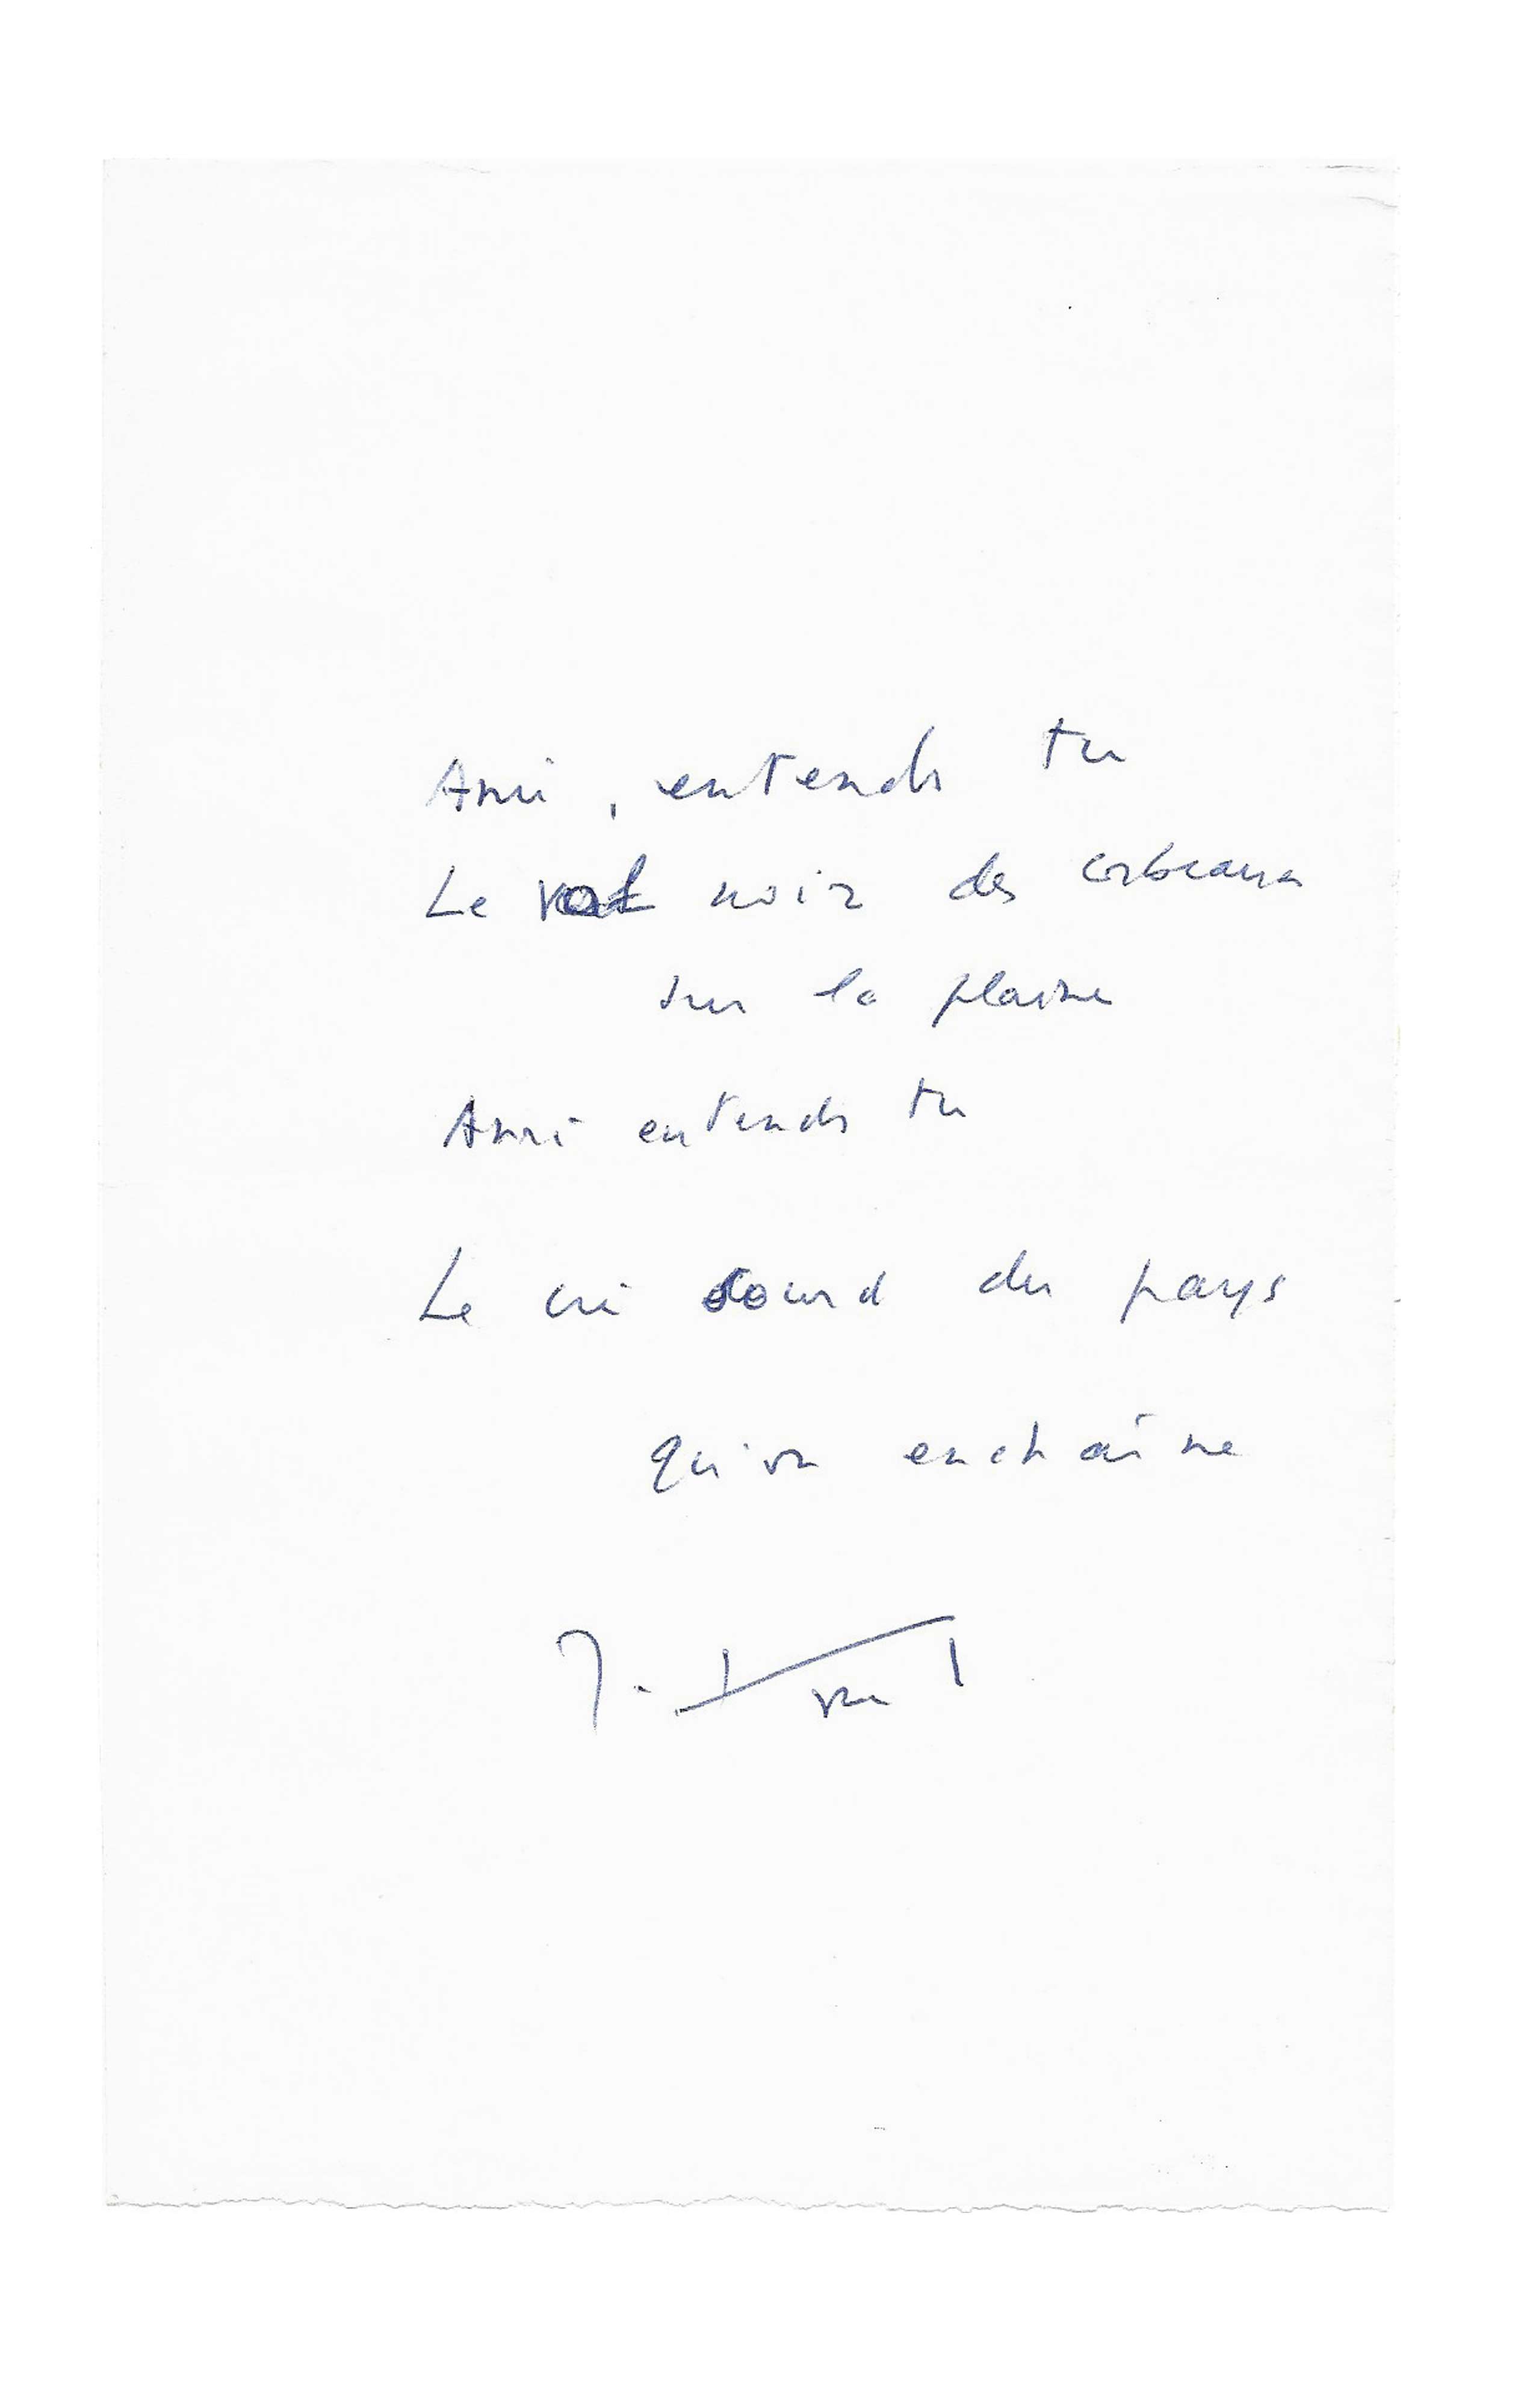 Ami, entends tu
Le vol noir des corbeaux
sur la plaine
Ami entends tu
Le cri sourd du pays
qu'on enchaîne
J.